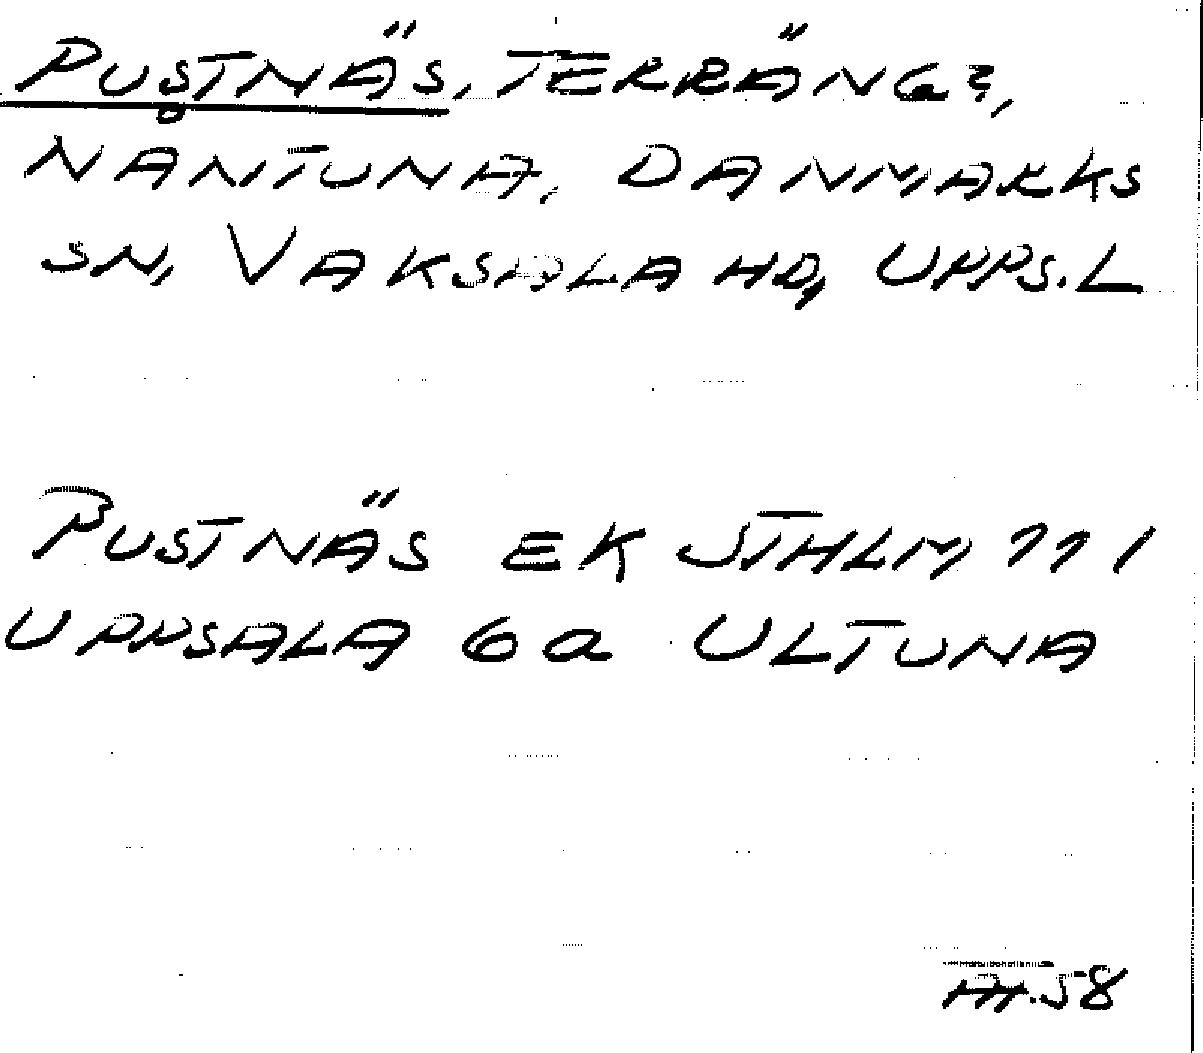 PUSTNÄS, TERRÄNG?,
NÅNTUNA, DANMARKS
SN, VAKSALA HD, UPPS.L
PUSTNÄS EK STHLM 111
UPPSALA 6a ULTUNA